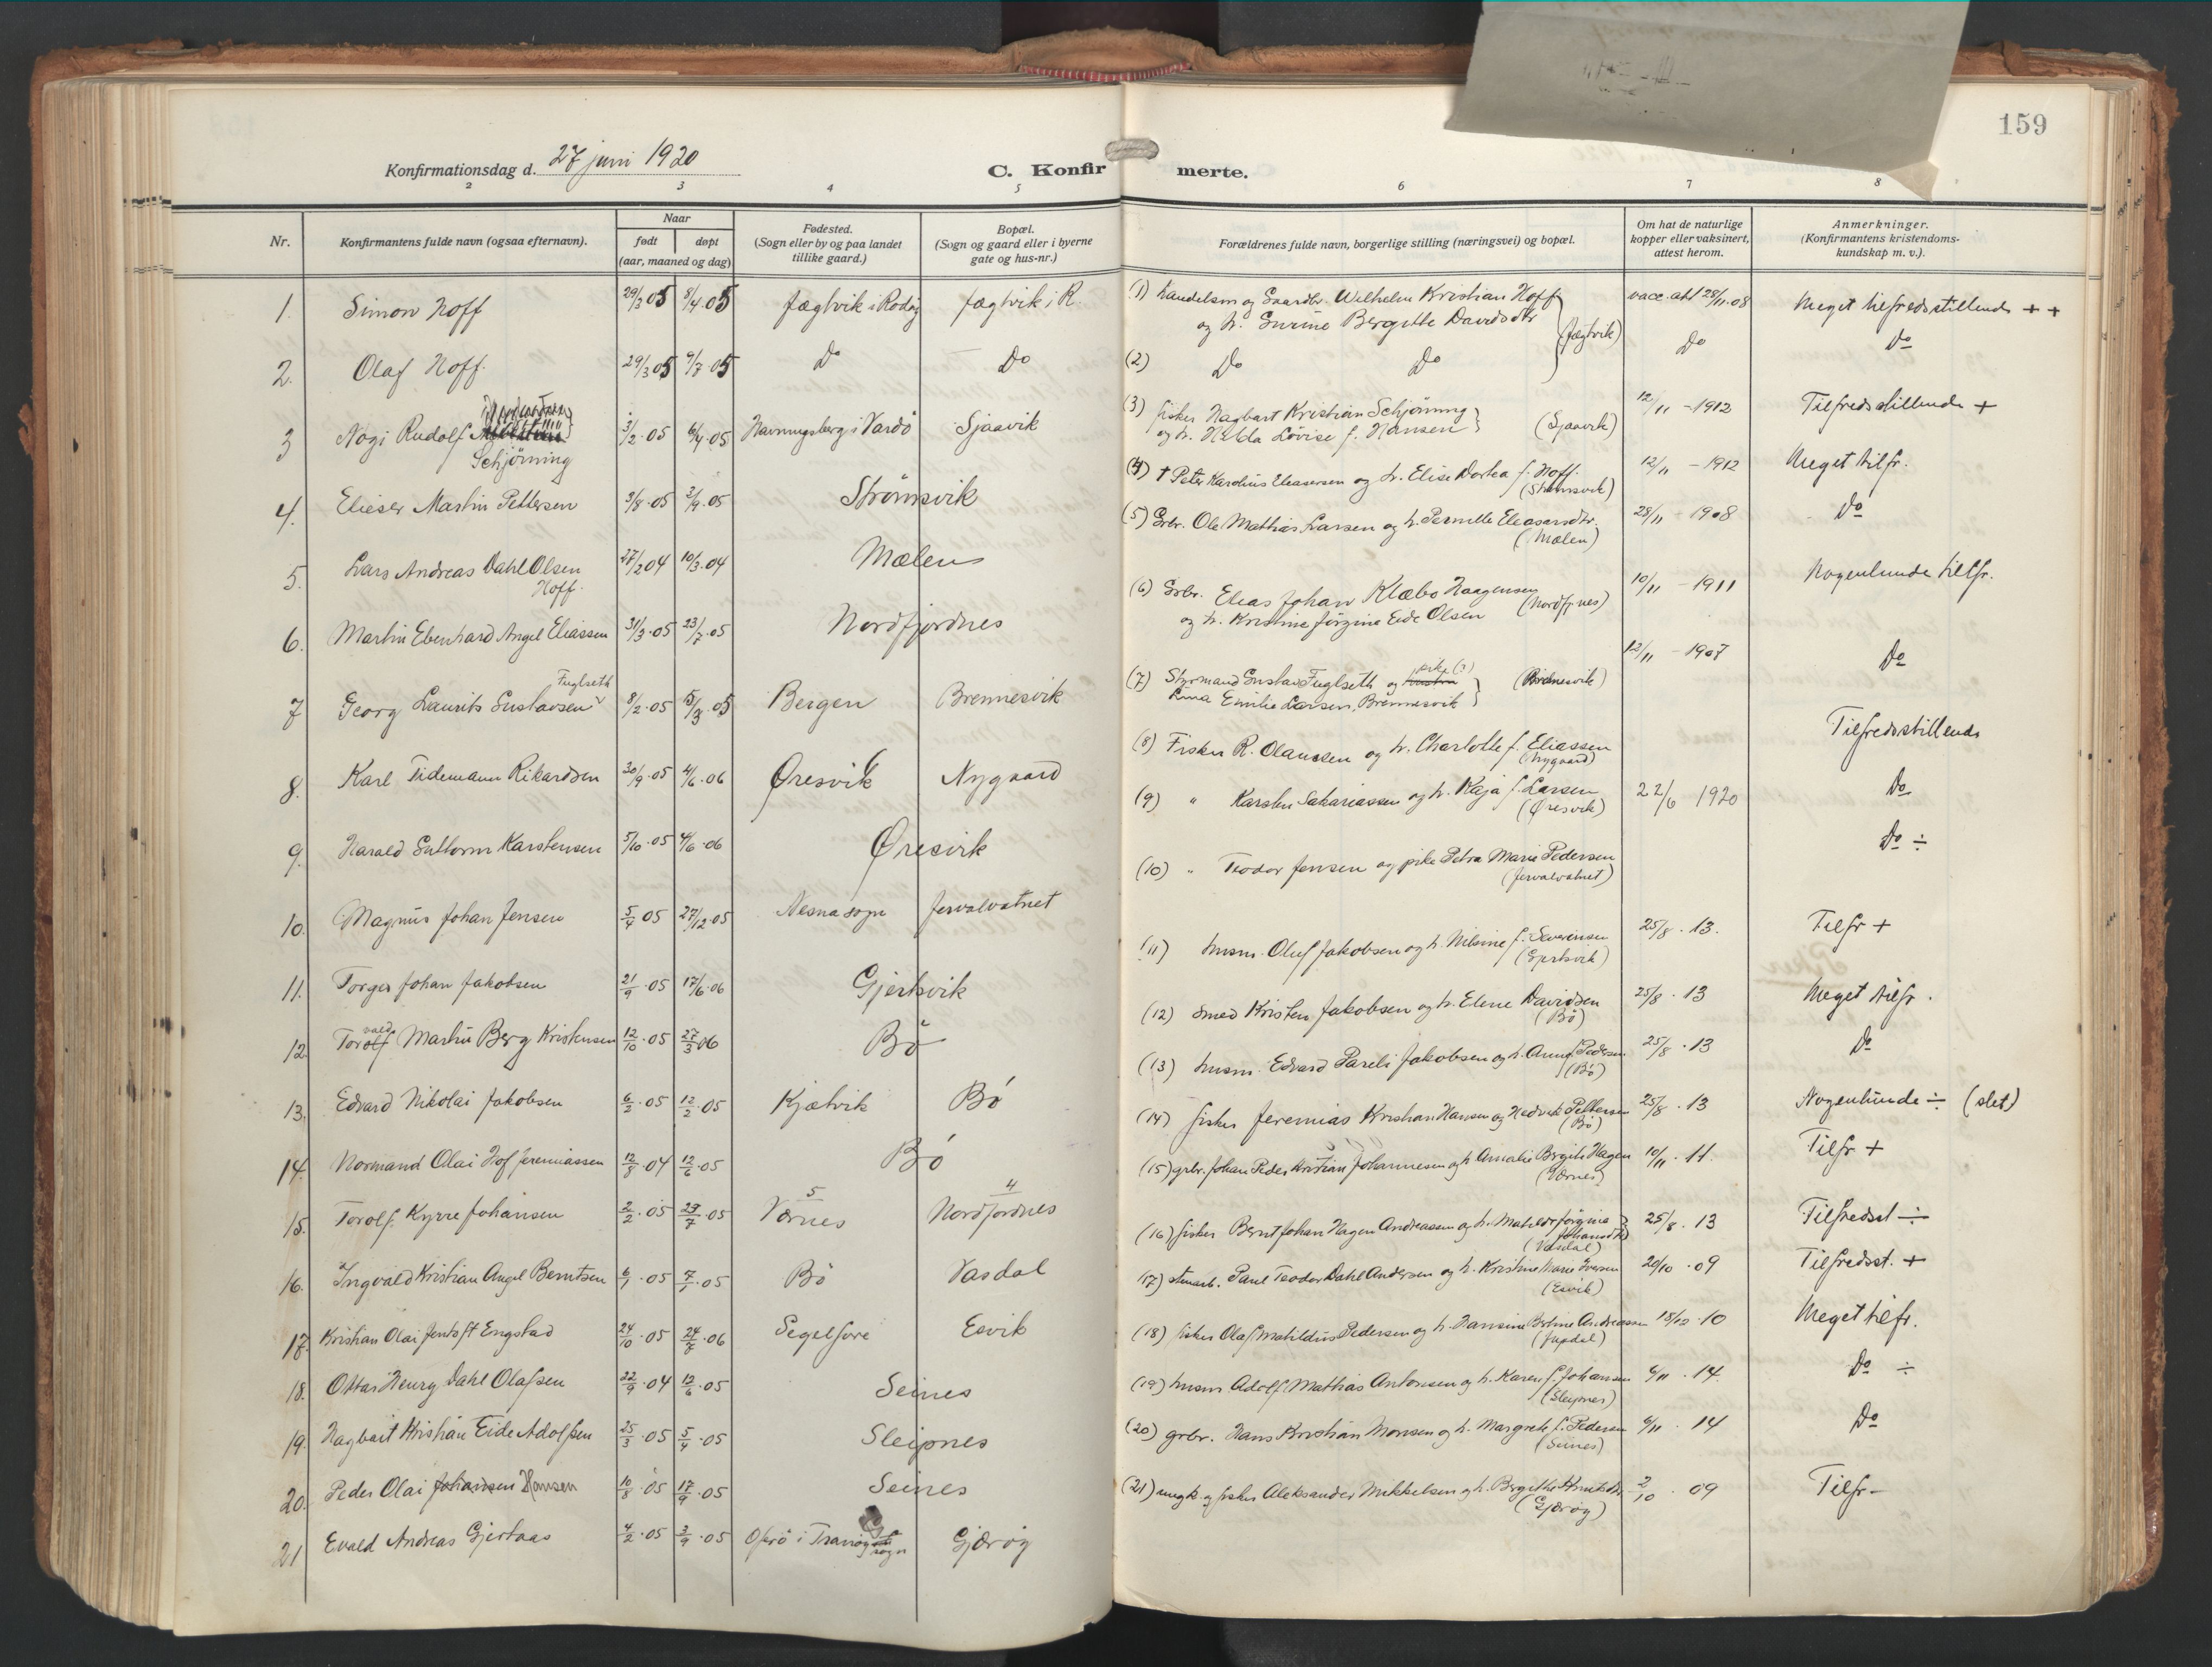 159
Konfirmationsdag d. 27 juni 1920
C. Konfirmerte.
2 3 4 5 6 7 8
Nr.
Konfirmantens fulde navn (ogsaa efternavn).
Naar
født døpt
(aar, maaned og dag)
Fødested.
(Sogn eller by og paa landet
tillike gaard.)
Bopæl.
(Sogn og gaard eller i byerne
gate og hus-nr.)
Forældrenes fulde navn, borgerlige stilling (næringsvei) og bopæl.
Om hat de naturlige
kopper eller vaksinert,
attest herom.
Anmerkninger.
(Konfirmantens kristendoms-
kundskap m. v.).
1. Simon Hoff 29/3 05 8/4 05 Jægtvik i Rodøy Jægtvik i R.
2. Olaf Hoff. 29/3 05 9/7 05 Do Do
3 Nogi Rudolf
Schjörning 3/2 05 6/4 05 Havningsberg i Vardö Sjaavik
4. Elieser Martin Pettersen 3/8 05 2/9 05 Strömsvik
5. Lars Andreas Dahl Olsen
Hoff. 27/2 04 10/3 04 Mælen
6. Martin Ebenhard Angel Eliassen 31/3 05 23/7 05 Nordfjordnes
Fuglseth
7 Georg Laurits Gustavsen 8/2 05 5/3 05 Bergen Brennesvik
8. Karl Tidemann Rikardsen 30/9 05 4/6 06 Øresvik Nygaard
9. Harald Guttorm Karstensen 5/10 05 4/6 06 Øresvik
10. Magnus Johan Jensen 5/4 05 27/12 05 Nesna sogn Jervalvatnet
11. Torger Johan Jakobsen 21/9 05 17/6 06 Gjertsvik
vald
12 Torolf Martin Berg Kristensen 12/10 05 27/3 06 Bö
13. Edvard Nikolai Jakobsen 6/2 05 12/2 05 Kjælvik Bö
14. Normand Olai Hof Jeremiassen 12/8 04 12/6 05 Bö
5 4
15. Torolf Kyrre Johansen 2/2 05 23/7 05 Værnes Nordfjordnes
16. Ingvald Kristian Angel Berntsen 6/1 05 7/1 05 Bö Vasdal
17. Kristian Olai Jentoft Engstad 24/10 05 24/8 06 Segelfore Esvik
18. Ottar Henry Dahl Olafsen 22/9 04 12/6 05 Seines
19. Hagbart Kristian Eide Adolfsen 25/3 05 5/4 05 Sleipnes
20. Peder Olai Johansen Hansen 10/8 05 17/9 05 Seines
21 Evald Andreas Gjertaas 4/2 05 3/9 05 i Tranøy sogn Gjærøy
(1) handelsm og Gaardbr. Wilhelm Kristian Hoff
og h. Gurine Bergitte Davidsdtr (Jægtvik) vacc. att 28/11 08 Meget tilfredsstillende + +
(2) Do Do Do Do
(3) fisker Hagbart Kristian Schjörning
og h. Hilda Lovise f. Hansen (Sjaavik) 12/11 - 1912 Tilfredsstillende +
(4) † Peter Karolius Eleasersen og h. Elise Dortea f. Hoff.
(Strömsvik) 12/11 - 1912 Meget tilfr.
(5) Grbr. Ole Mathias Larsen og h. Pernille Eleasarsdtr.
(Mælen) 28/11 - 1908 Do
(6) Grbr. Elias Johan Klæbo Haagensen
og h. Kristine Jörgine Eide Olsen (Nordfj.nes) 10/11 - 1911 Nogenlunde tilfr.
pike (?)
(7) Styrmand Gustav Fuglseth og hustru
Emilie Larsen, Brennesvik (Brennesvik) 12/11 - 1907 Do
(8) Fisker R. Olaussen og h. Charlotte f. Eliassen
(Nygaard) Tilfredsstillende
(9) " Karsten Sakariassen og h. Kaja f. Larsen
(Øresvik) 22/6 1920 Do
(10) " Teodor Jensen og pike Petra Marie Pedersen
(Jervalvatnet) Do ÷
(11) husm. Oluf Jakobsen og h. Nilsine f. Severinsen
(Gjertsvik) 25/8 . 13. Tilfr +
(12) smed Kristen Jakobsen og h. Elene Davidsen
(Bö) 25/8 . 13 Meget tilfr.
(13) husm. Edvard Pareli Jakobsen og h. Anna f. Pedersen
(Bö) 25/8 . 13 Do
(14) fisker Jeremias Kristian Hansen og Hedvik Pettersen
(Bö) 25/8 . 13 Nogenlunde ÷ (slet)
(15) grbr. Johan Peder Kristian Johannesen og h Amalie Bergitte Hagen
(Værnes) 10/11 . 11. Tilfr +
(16) fisker Bernt Johan Hagen Andreassen og h. Matilde Jörgine
Johansdtr
(Vasdal) 25/8 . 13 Tilfredsst ÷
(17) stenarb. Paul Teodor Dahl Andersen og h. Kristine Marie Iversen
(Esvik) 20/10 . 09 Tilfredsst. +
(18) fisker Olaf Matildius Pedersen og h. Hansine Andreassen
15/10 . 10 Meget tilfr.
(19) husm Adolf Mathias Antonsen og h. Karen f. Johansen
(Sleipnes) 6/11 . 14. Do ÷
(20) grbr. Hans Kristian Monsen og h. Margrete f. Pedersen
(Seines) 6/11 . 14 Do
(21) ungk. og fisker Aleksander Mikkelsen og h. Bergitte
(Gjærøy) 2/10 . 09 Tilfr -